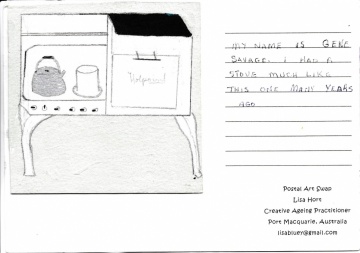 Hotpoint
MY NAME IS GENE
SAVAGE. I HAD A
STOVE MUCH LIKE
THIS ONE MANY YEARS
AGO
Postal Art Swap
Lisa Hort
Creative Ageing Practitioner
Port Macquarie, Australia
lisabluer@gmail.com